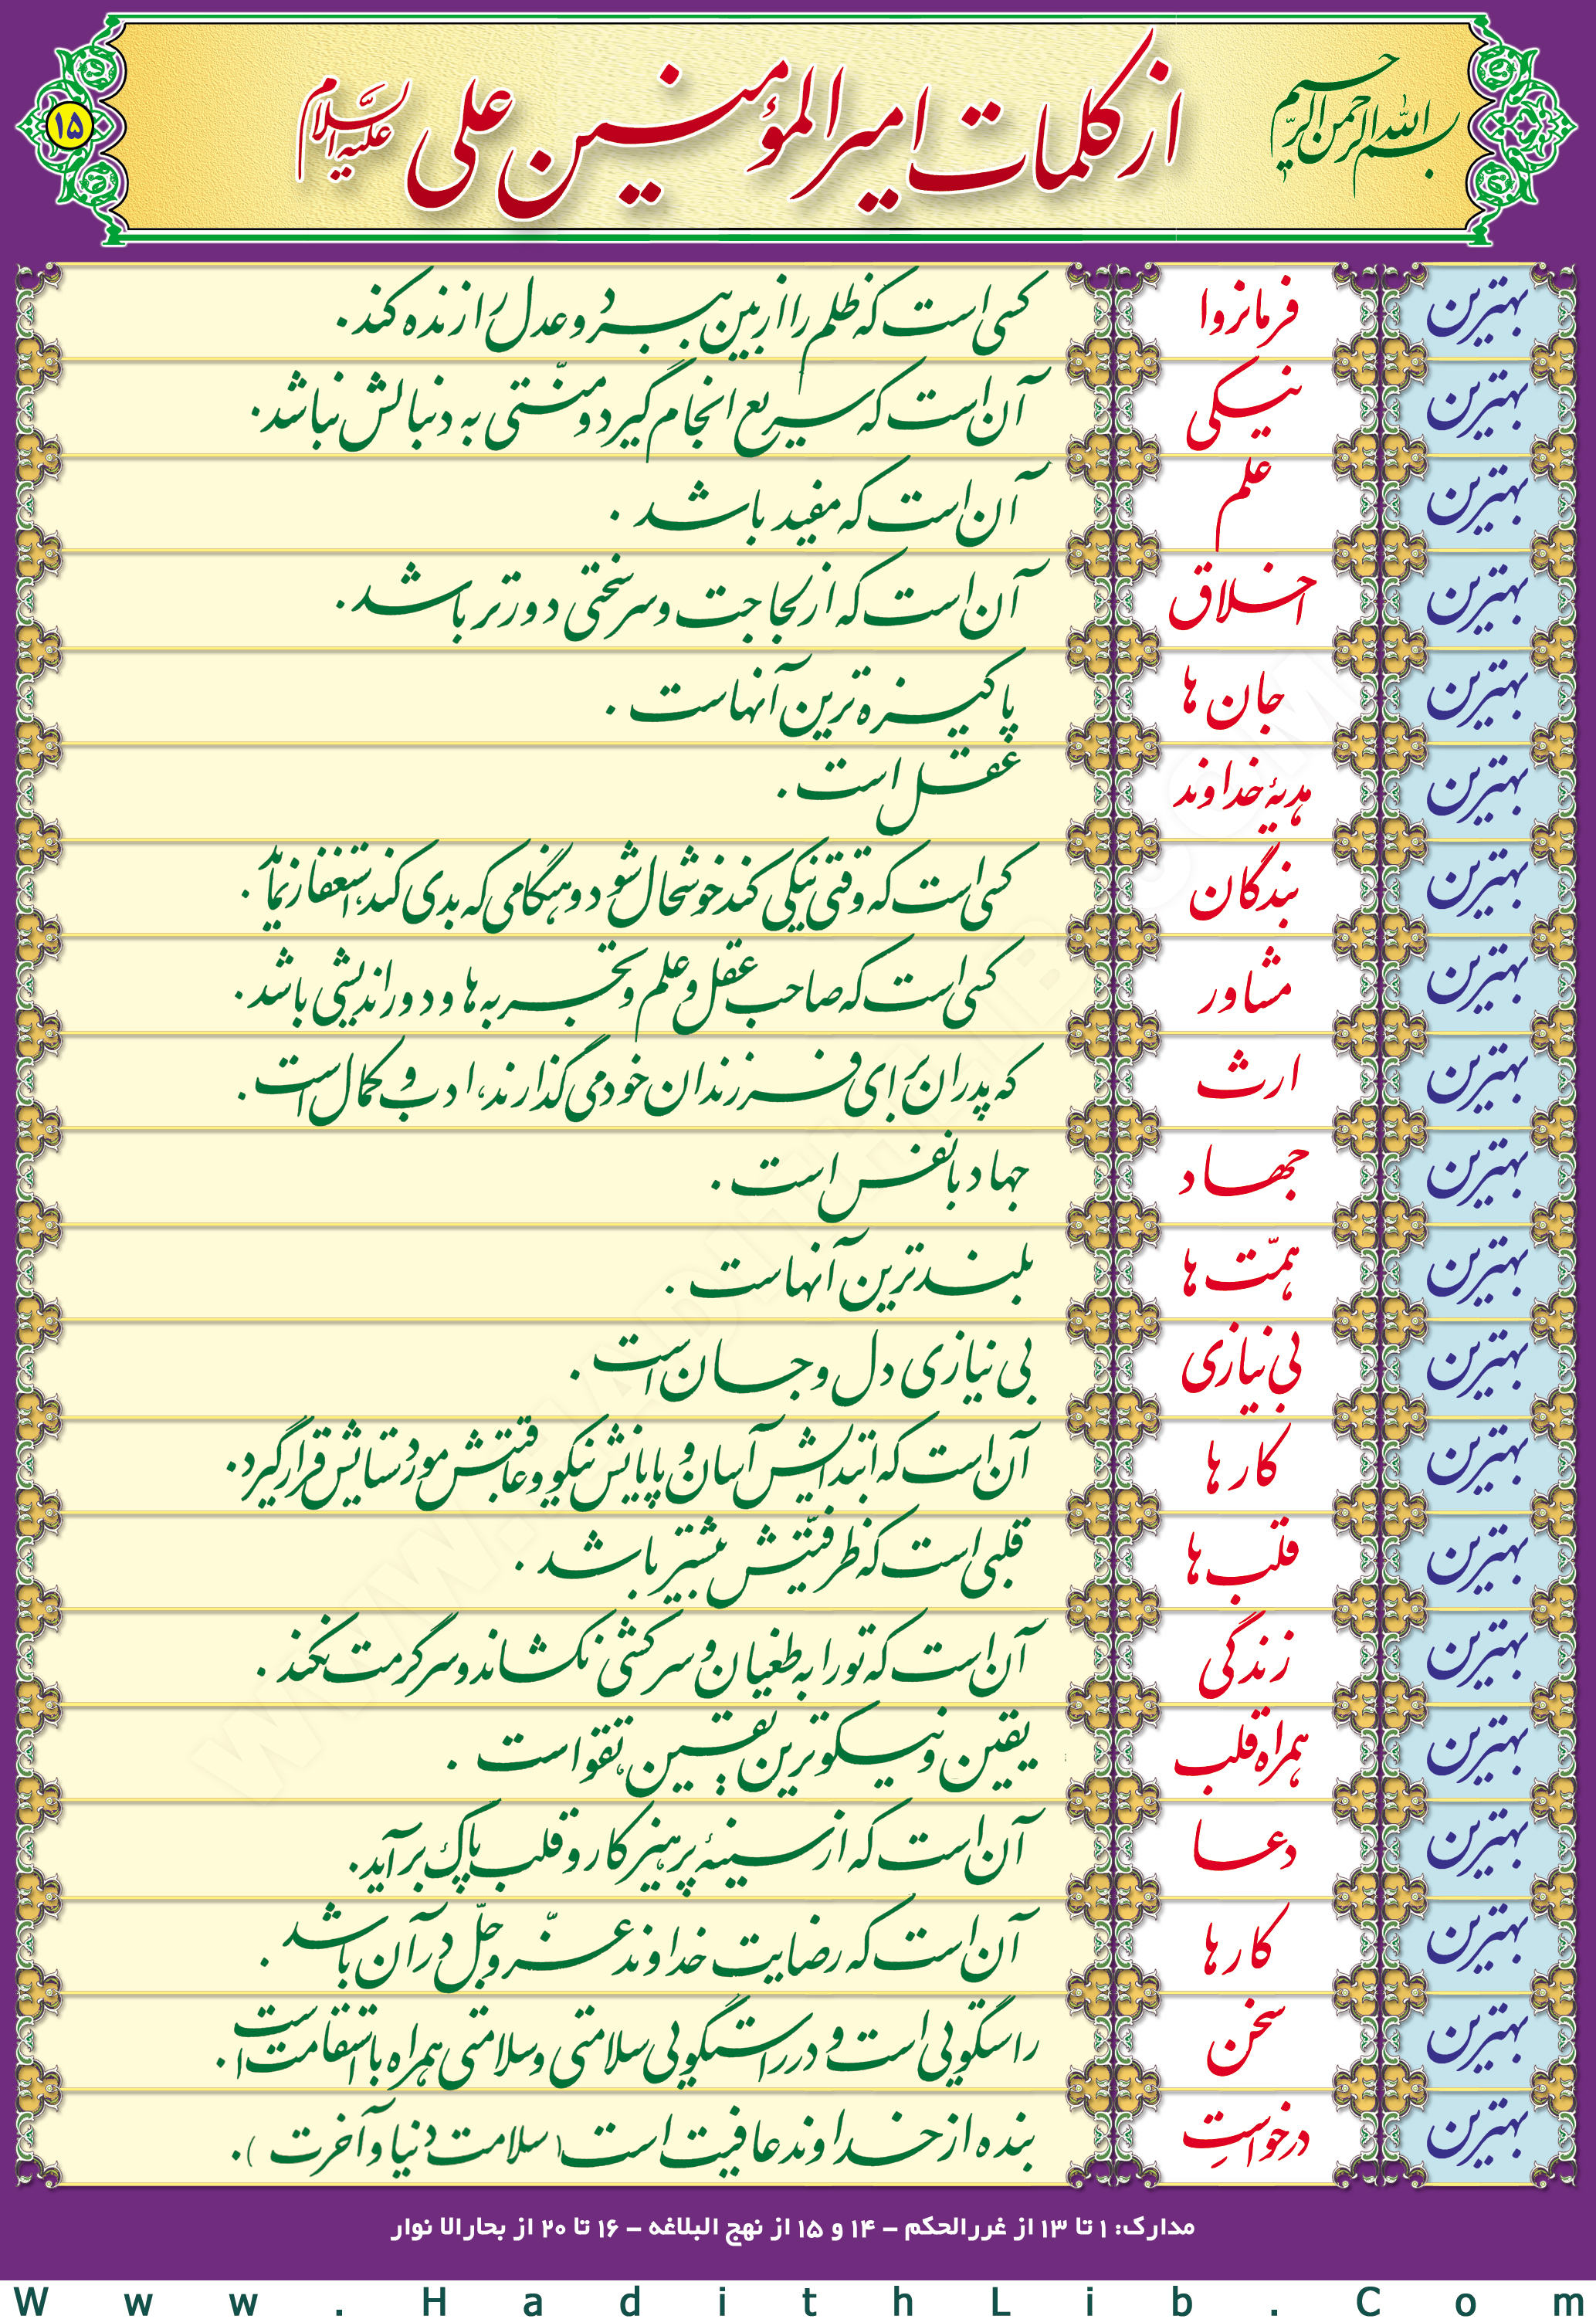 بسم الله الرحمن الرحیم
از کلمات امیرالمؤمنین علی علیه السلام
۱۵
بهترین فرمانروا کسی است که ظلم را از بین ببرد و عدل را زنده کند.
بهترین نیکی آن است که سریع انجام گیرد و منّتی به دنبالش نباشد.
بهترین علم آن است که مفید باشد.
بهترین اخلاق آن است که از لجاجت و سرسختی دورتر باشد.
بهترین جان ها پاکیزه ترین آنهاست.
بهترین هدیهٔ خداوند عقل است.
بهترین بندگان کسی است که وقتی نیکی کند خوشحال شود و هنگامی که بدی کند، استغفار نماید.
بهترین مشاور کسی است که صاحب عقل و علم و تجربه ها و دوراندیشی باشد.
بهترین ارث که پدران برای فرزندان خود می گذارند، ادب و کمال است.
بهترین جهاد جهاد با نفس است.
بهترین همّت ها بلندترین آنهاست.
بهترین بی نیازی بی نیازی دل و جان است.
بهترین کارها آن است که ابتدایش آسان و پایانش نیکو و عاقبتش مورد ستایش قرار گیرد.
بهترین قلب ها قلبی است که ظرفیّتش بیشتر باشد.
بهترین زندگی آن است که تو را به طغیان و سرکشی نکشاند و سرگرمت نکند.
بهترین همراه قلب یقین و نیکوترین یقین، تقواست.
بهترین دعا آن است که از سینهٔ پرهیزکار و قلب پاک برآید.
بهترین کارها آن است که رضایت خداوند عزّوجلّ در آن باشد.
بهترین سخن راستگویی است و در راستگویی سلامتی و سلامتی همراه با استقامت است.
بهترین درخواست بنده از خداوند عافیت است (سلامت دنیا و آخرت).
مدارک: ۱ تا ۱۳ از غررالحکم - ۱۴ و ۱۵ از نهج البلاغه - ۱۶ تا ۲۰ از بحارالا نوار
Www.HadithLib.Com